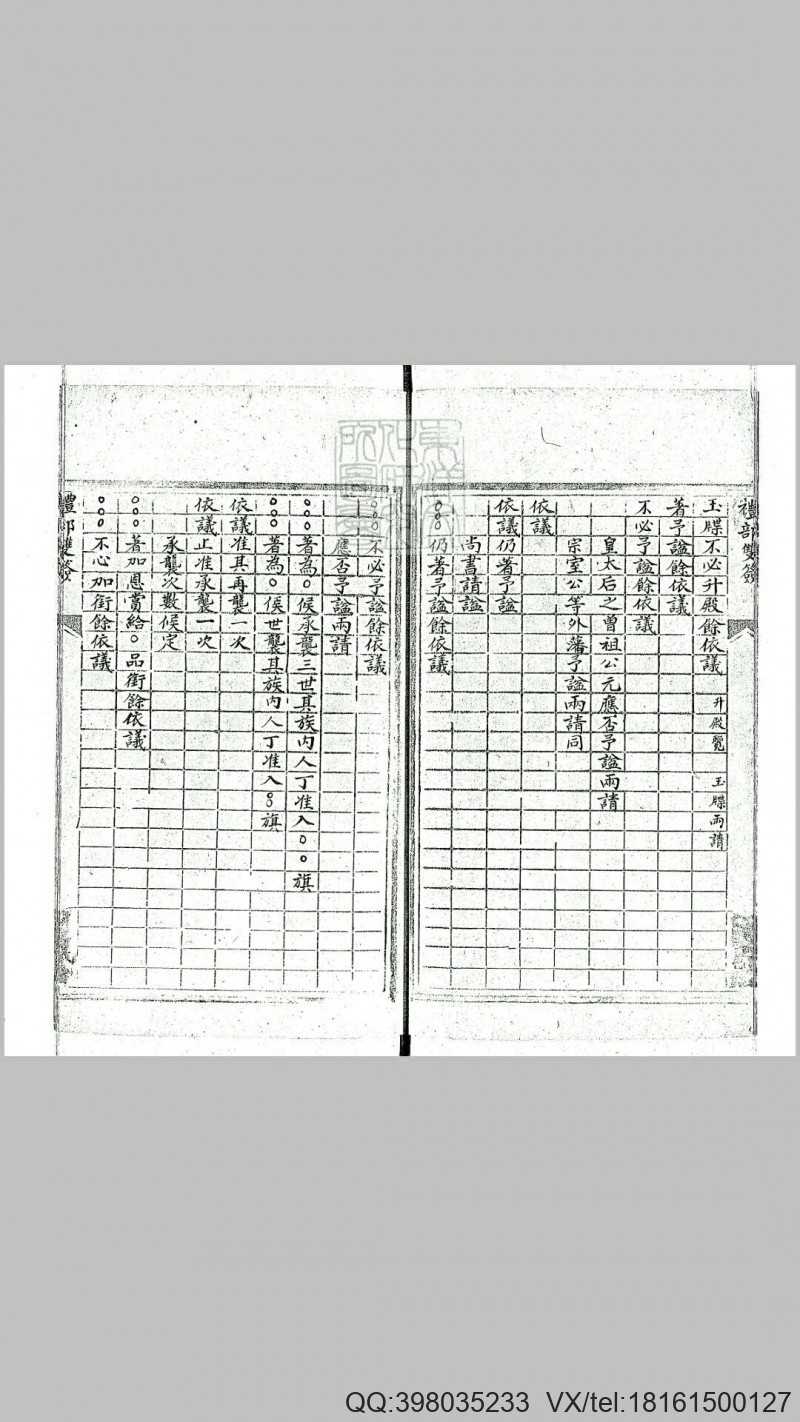 禮部雙簽
玉牒不必升殿餘依議 升殿覽 玉牒兩請
著予謚餘依議
不必予謚餘依議
皇太后之曾祖公元應否予謚兩請
宗室公等外藩予謚兩請同
依議
依議仍著予謚
尚書請謚
○○○仍著予謚餘依議
○○○不必予謚餘依議
應否予謚兩請
○○○著為○侯承襲三世其族內人丁准入○○旗
○○○著為○侯世襲其族內人丁准入○○旗
依議准其再襲一次
依議止准承襲一次
承襲次數候定
○○○著加恩賞給○品銜餘依議
○○○不必加銜餘依議
禮部雙簽
QQ:398035233 VX/tel:18161500127